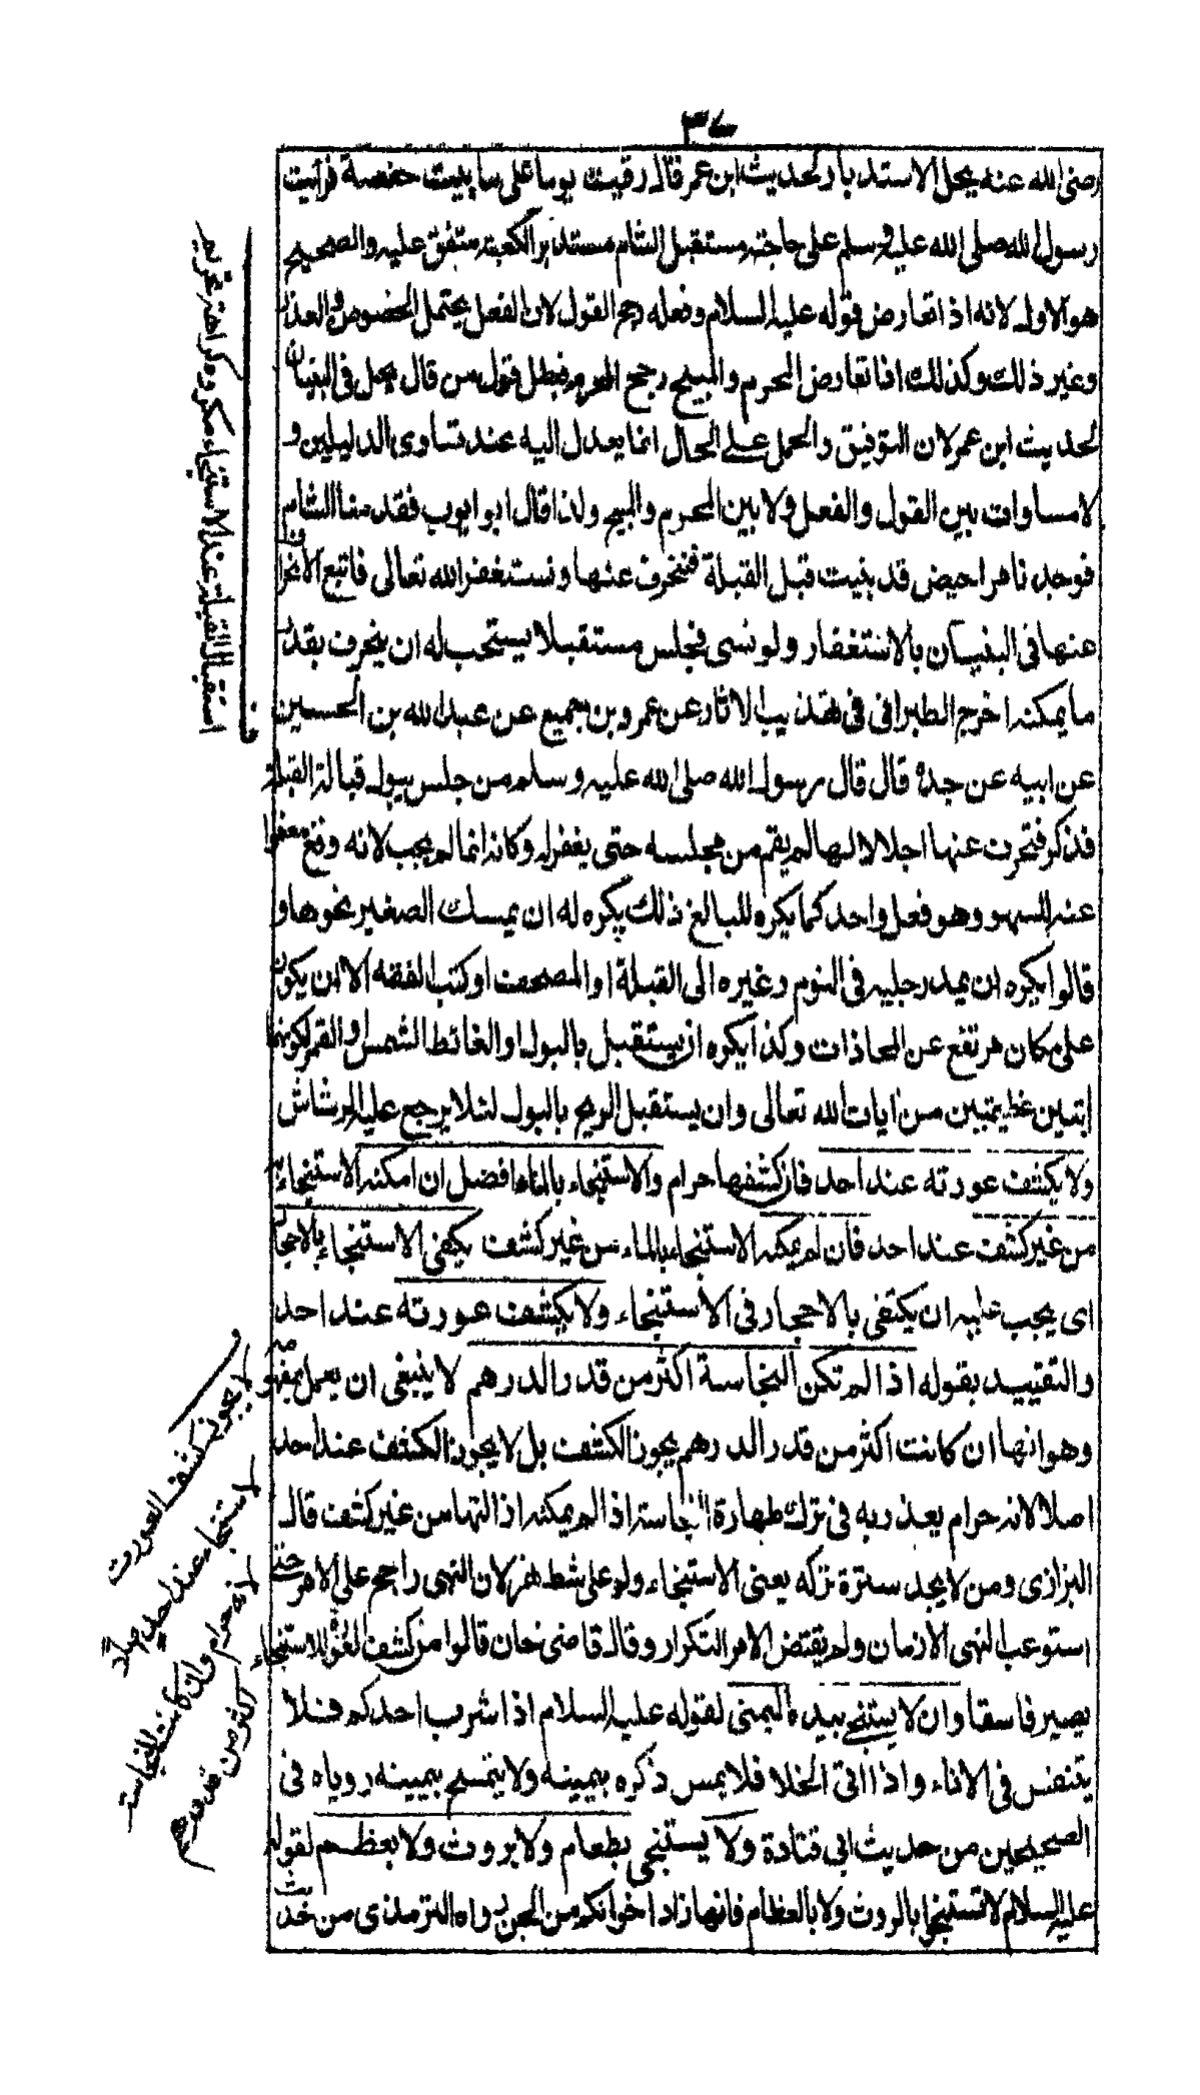 ٣٧
رضى الله عنه يحل الاستدبار لحديث ابن عمر قال رقيت يوما على بيت حفصة فرأيت
رسول الله صلى الله عليه وسلم على حاجته مستقبل الشام مستدبر الكعبة متفق عليه والصحيح
هو الاول لانه اذا تعارض قوله عليه السلام وفعله رجح القول لان الفعل يحتمل الخصوص والعذر
وغير ذلك وكذلك اذا تعارض المحرم والمبيح رجح المحرم فبطل قول من قال يحل فى البنيان
لحديث ابن عمر لان التوفيق والحمل على الحال انما يعدل اليه عند تساوى الدليلين و
لا مساوات بين القول والفعل ولا بين المحرم والمبيح ولذا قال ابو ايوب فقدمنا الشام
فوجدنا مراحيض قد بنيت قبل القبلة فننحرف عنها ونستغفر الله تعالى فاتبع الانحراف
عنها فى البنيان بالاستغفار ولو نسى فجلس مستقبلا يستحب له ان ينحرف بقدر
ما يمكنه اخرج الطبرانى فى تهذيب الاثار عن عمرو بن جميع عن عبد الله بن الحسين
عن ابيه عن جده قال قال رسول الله صلى الله عليه وسلم من جلس يبول قبالة القبلة
فذكر فتحرف عنها اجلالا لها لم يقم من مجلسه حتى يغفر له وكانه انما لم يجب لانه وقع معفوا
عنه للسهو وهو فعل واحد كما يكره للبالغ ذلك يكره له ان يمسك الصغير نحوها و
قالوا يكره ان يمد رجليه فى النوم وغيره الى القبلة او المصحف او كتب الفقه الا ان يكون
على مكان مرتفع عن المحاذات وكذا يكره ان يستقبل بالبول او الغائط الشمس والقمر لكونهما
ايتين عظيمتين من ايات الله تعالى وان يستقبل الريح بالبول لئلا يرجع عليه الرشاش
ولا يكشف عورته عند احد فان كشفها حرام والاستنجاء بالماء افضل ان امكنه الاستنجاء
من غير كشف عند احد فان لم يمكنه الاستنجاء بالماء من غير كشف يكفى الاستنجاء بالاحجار
اى يجب عليه ان يكتفى بالاحجار فى الاستنجاء ولا يكشف عورته عند احد
والتقييد بقوله اذا لم تكن النجاسة اكثر من قدر الدرهم لا ينبغى ان يعمل بمفهومه
وهو انها ان كانت اكثر من قدر الدرهم يجوز الكشف بل لا يجوز الكشف عند احد
اصلا لانه حرام يعذر به فى ترك طهارة النجاسة اذا لم يمكنه ازالتها من غير كشف قال
البزازى ومن لا يجد سترة تركه يعنى الاستنجاء ولو على شط نهر لان النهى راجح على الامر حتى
استوعب النهى الازمان ولم يقتض الامر التكرار وقال قاضى خان قالوا من كشف العورة للاستنجاء
يصير فاسقا وان لا يستنجى بيده اليمنى لقوله عليه السلام اذا شرب احدكم فلا
يتنفس فى الاناء واذا اتى الخلا فلا يمس ذكره بيمينه ولا يتمسح بيمينه روياه فى
الصحيحين من حديث ابى قتادة ولا يستنجى بطعام ولا بروث ولا بعظم لقوله
عليه السلام لا تستنجوا بالروث ولا بالعظام فانها زاد اخوانكم من الجن رواه الترمذى من حديث
استقبال القبلة عند الاستنجاء مكروه كراهة تحريم
لا يجوز كشف العورت
لاستنجاء عند احد اصلاً
لانه حرام وان كانت النجاست
اكثر من قدر درهم